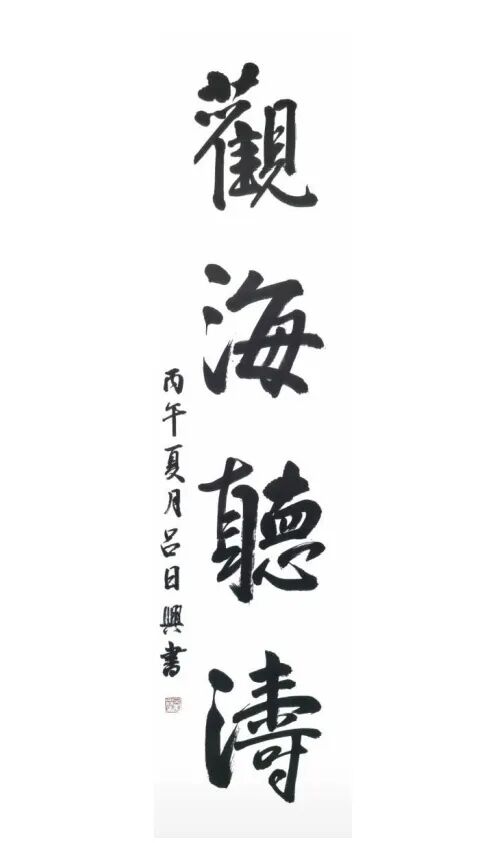 觀海聽濤
丙午夏月呂日興書